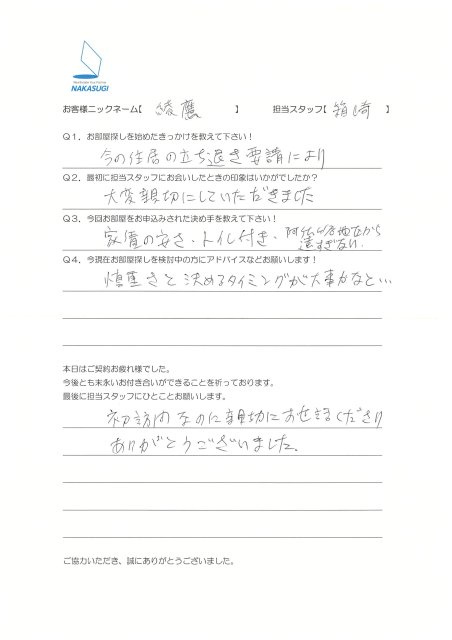 NAKASUGI
お客様ニックネーム【 綾鷹 】 担当スタッフ【 箱崎 】
Q1．お部屋探しを始めたきっかけを教えて下さい！
今の住居の立ち退き要請により
Q2．最初に担当スタッフにお会いしたときの印象はいかがでしたか？
大変親切にしていただきました
Q3．今回お部屋をお申込みされた決め手を教えて下さい！
家賃の安さ・トイレ付き・阿佐ヶ谷地区から
遠すぎない．
Q4．今現在お部屋探しを検討中の方にアドバイスなどお願いします！
慎重さと決めるタイミングが大事かなと…
本日はご契約お疲れ様でした。
今後とも末永いお付き合いができることを祈っております。
最後に担当スタッフにひとことお願いします。
初訪問なのに親切にお世話くださり
ありがとうございました．
ご協力いただき、誠にありがとうございました。